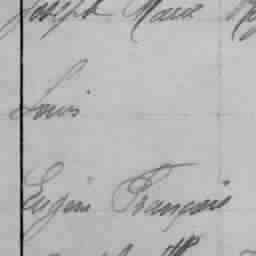 Joseph Marie
Louis
Eugène François